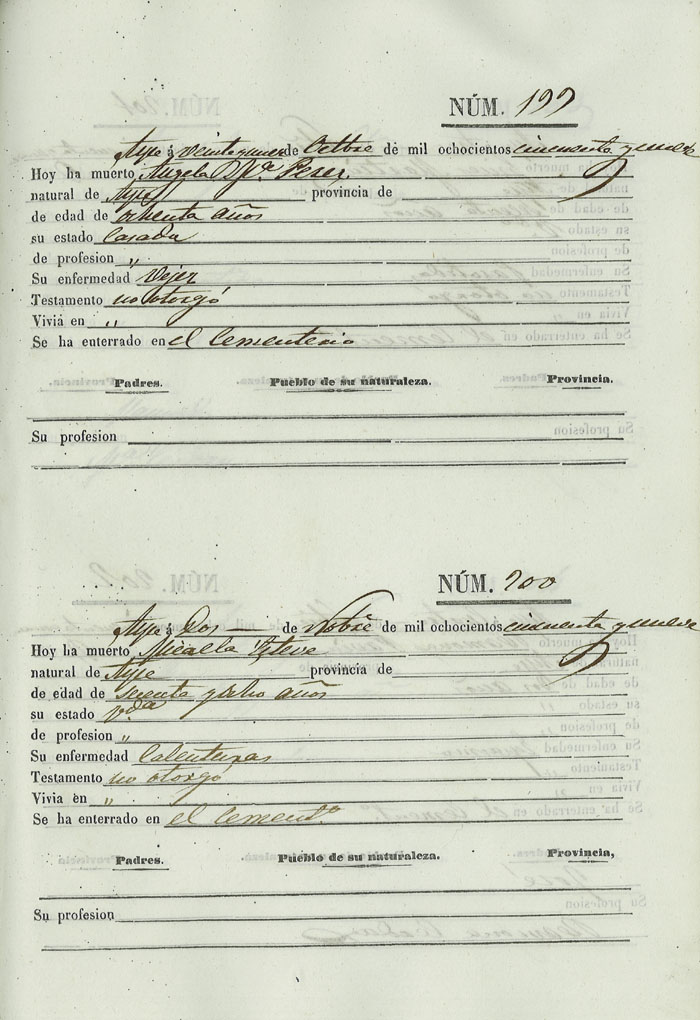 NÚM. 199
Aspe á veintinueve de Octbre de mil ochocientos cincuenta y nueve
Hoy ha muerto Angela Perez
natural de Aspe provincia de
de edad de ochenta años
su estado Casada
de profesion „
Su enfermedad Vejez
Testamento no otorgó
Vivia en „
Se ha enterrado en el Cementerio
Padres. Pueblo de su naturaleza. Provincia.
Su profesion
NÚM. 200
Aspe á Dos de Nobre de mil ochocientos cincuenta y nueve
Hoy ha muerto Micaela Esteve
natural de Aspe provincia de
de edad de y ocho años
su estado Vda
de profesion „
Su enfermedad Calenturas
Testamento no otorgó
Vivia en „
Se ha enterrado en el Cementº
Padres. Pueblo de su naturaleza. Provincia,
Su profesion